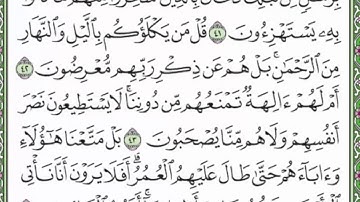 بِهِۦ يَسْتَهْزِءُونَ ٤١ قُلْ مَن يَكْلَؤُكُم بِٱلَّيْلِ وَٱلنَّهَارِ
مِنَ ٱلرَّحْمَٰنِ ۗ بَلْ هُمْ عَن ذِكْرِ رَبِّهِم مُّعْرِضُونَ ٤٢
أَمْ لَهُمْ ءَالِهَةٌ تَمْنَعُهُم مِّن دُونِنَا ۚ لَا يَسْتَطِيعُونَ نَصْرَ
أَنفُسِهِمْ وَلَا هُم مِّنَّا يُصْحَبُونَ ٤٣ بَلْ مَتَّعْنَا هَٰٓؤُلَآءِ
وَءَابَآءَهُمْ حَتَّىٰ طَالَ عَلَيْهِمُ ٱلْعُمُرُ ۗ أَفَلَا يَرَوْنَ أَنَّا نَأْتِى